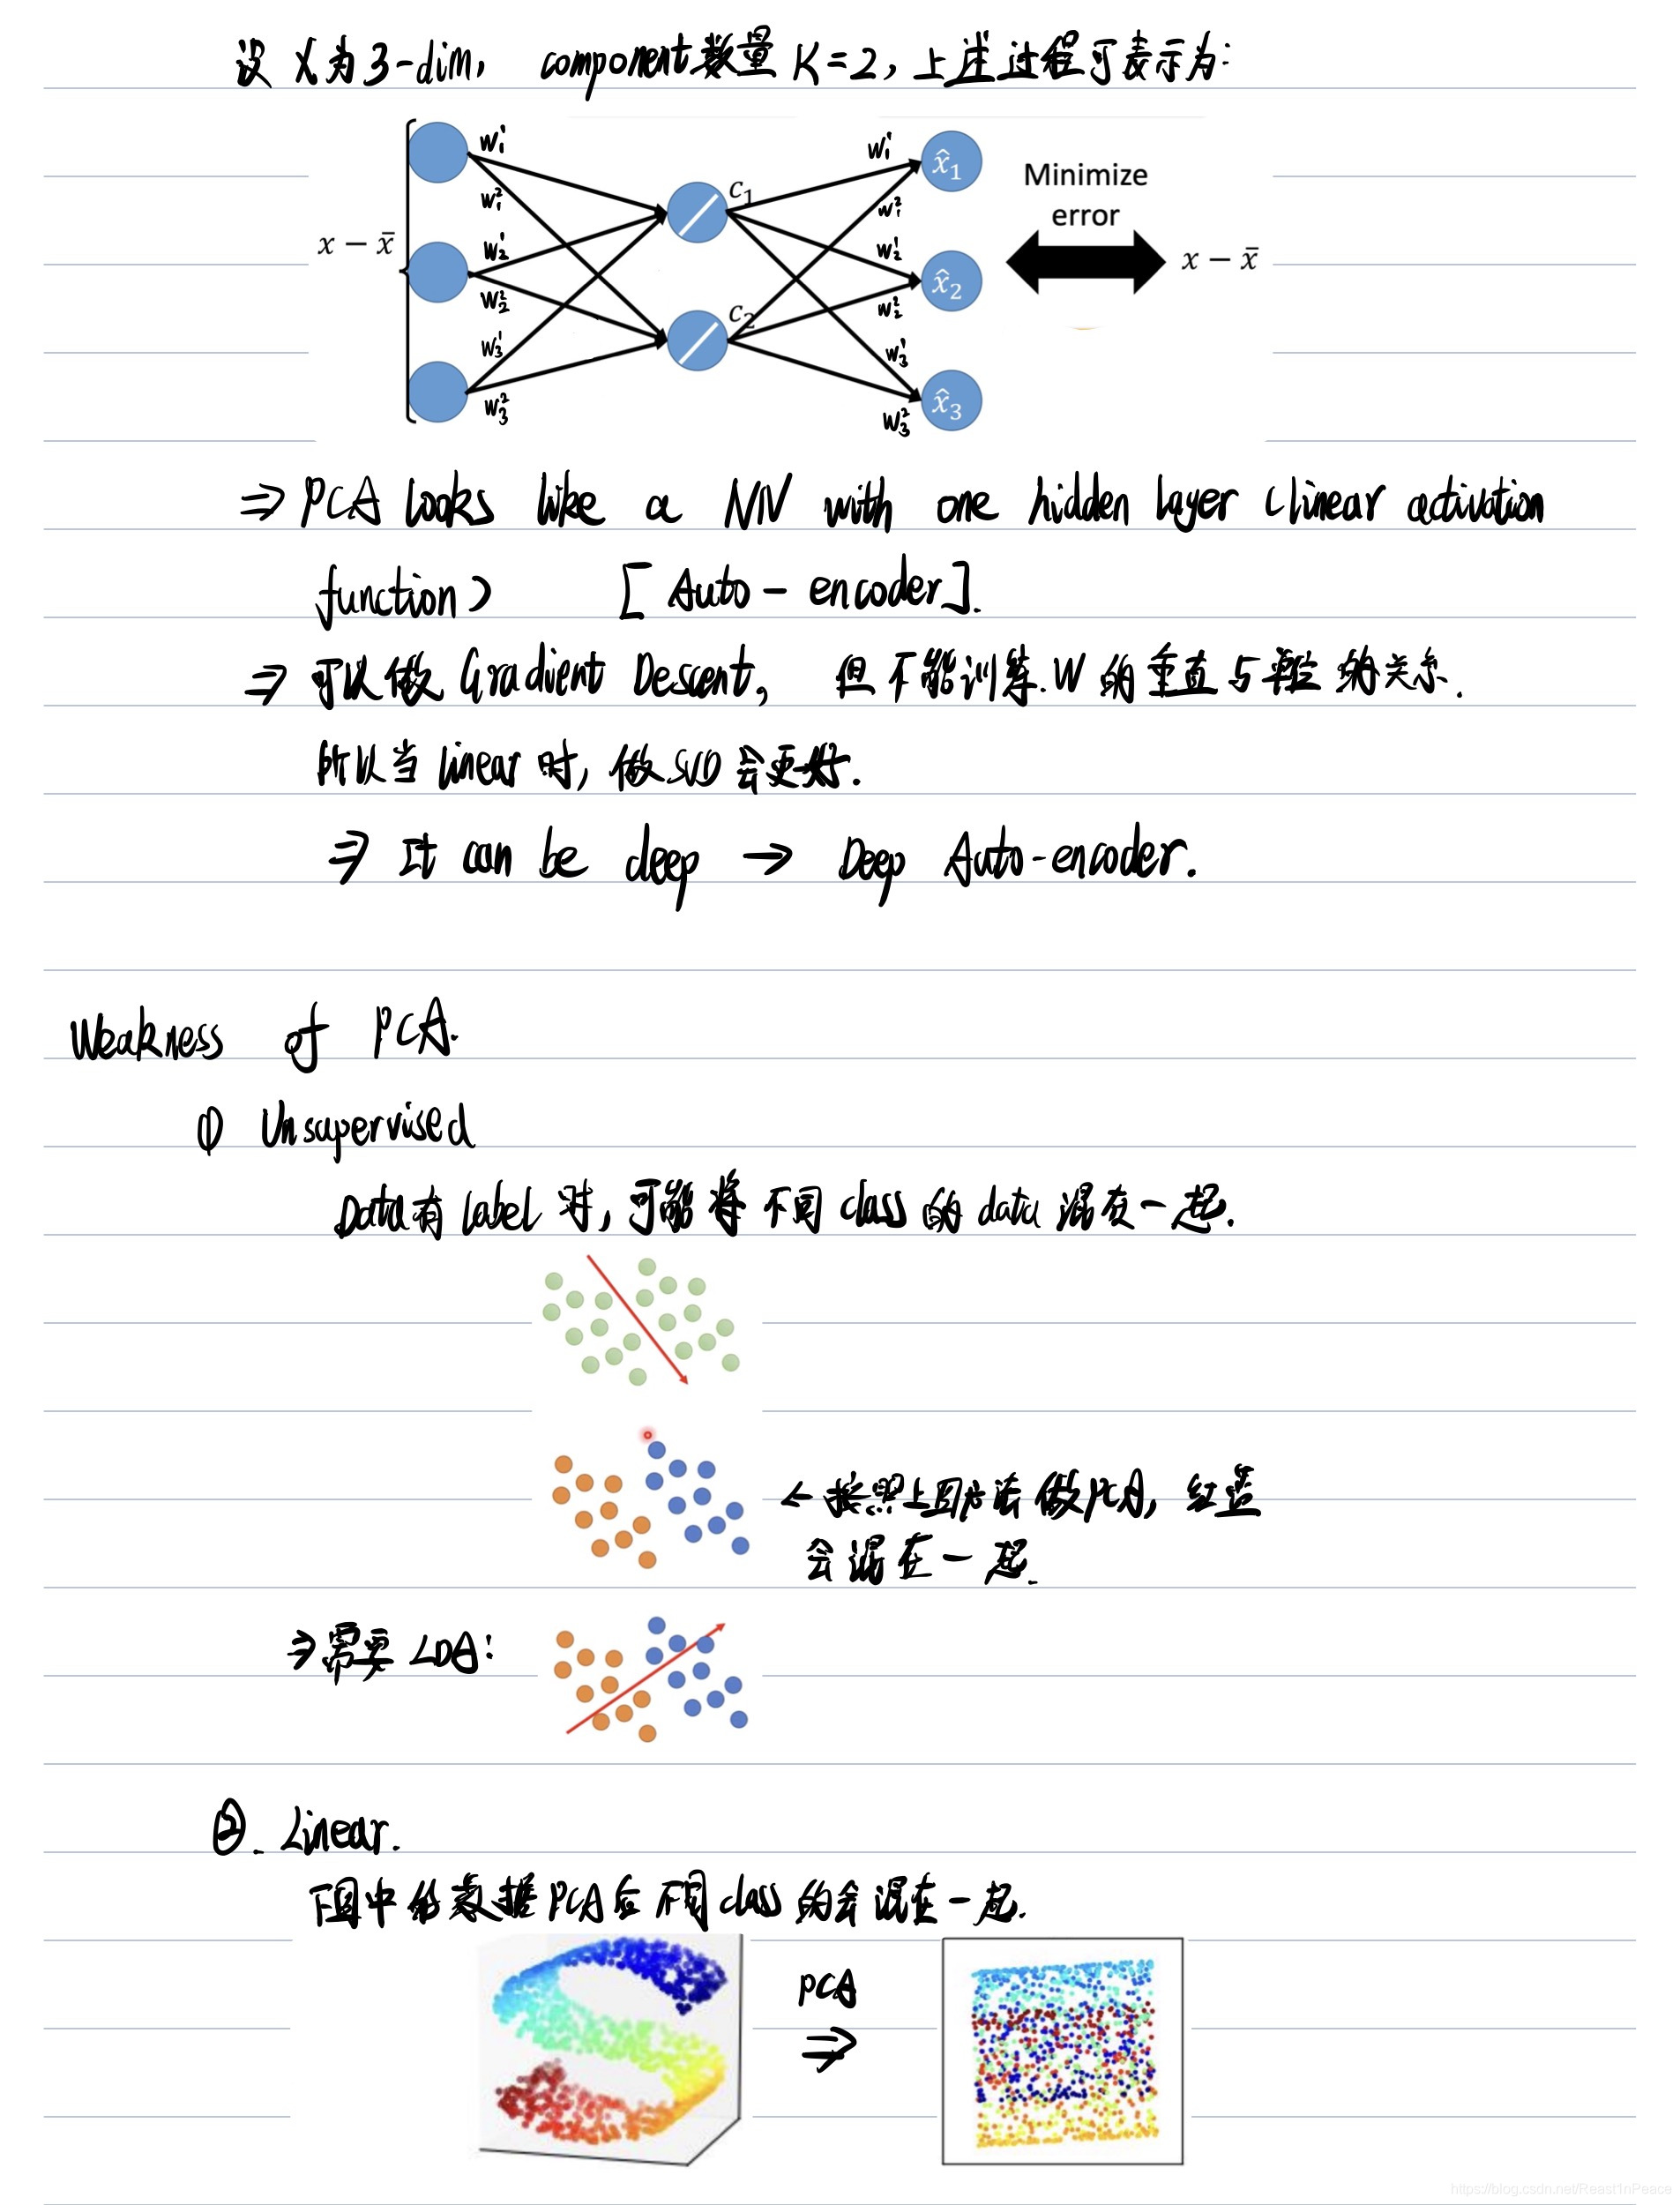 设 X 为 3-dim, component数量 K=2, 上述过程可表示为:
w₁¹
w₁²
w₂¹
w₂²
w₃¹
w₃²
x − x̄
c₁
c₂
w₁¹
w₁²
w₂¹
w₂²
w₃¹
w₃²
x̂₁
x̂₂
x̂₃
Minimize
error
x − x̄
⇒ PCA looks like a NN with one hidden layer (linear activation
function) [Auto-encoder].
⇒ 可以做 Gradient Descent, 但不能训练 W 的垂直与单位的关系.
所以当 linear 时, 做SVD会更好.
⇒ It can be deep → Deep Auto-encoder.
Weakness of PCA.
① Unsupervised
Data有 label 时, 可能将不同 class 的 data 混在一起.
← 按照上图方法做PCA, 红蓝
会混在一起.
⇒需要 LDA:
②. Linear.
下图中的数据PCA后不同class的会混在一起.
PCA
⇒
https://blog.csdn.net/Reast1nPeace